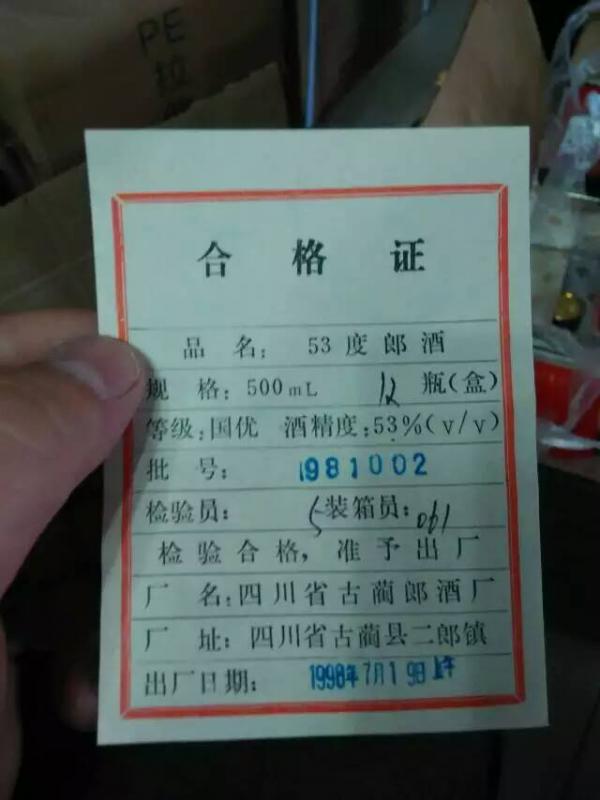 PE
合格证
品名: 53度郎酒
规格: 500mL 12瓶(盒)
等级:国优 酒精度:53%(v/v)
批号: 1981002
检验员: 5 装箱员: 061
检验合格,准予出厂
厂名:四川省古蔺郎酒厂
厂址: 四川省古蔺县二郎镇
出厂日期: 1998年7月19日上午